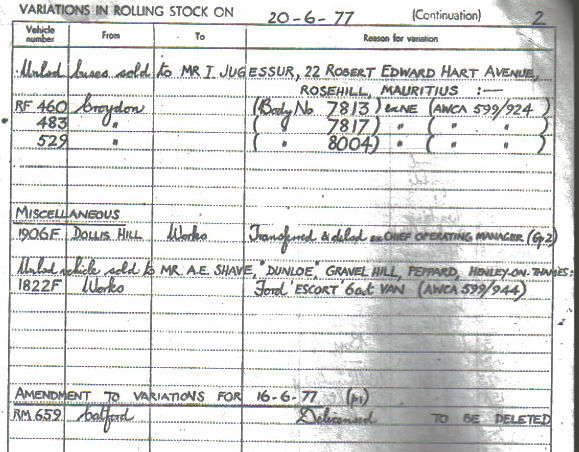 VARIATIONS IN ROLLING STOCK ON 20-6-77 (Continuation) 2
Vehicle number From To Reason for variation
Unlsd buses sold to MR I. JUGESSUR, 22 ROBERT EDWARD HART AVENUE,
ROSEHILL, MAURITIUS :—
RF 460 Croydon (Body No 7813) (AWCA 599/924)
483 " ( " 7817) " ( " " )
529 " ( " 8004) " ( " " )
MISCELLANEOUS
1906F DOLLIS HILL Works Transferred & delsd ex CHIEF OPERATING MANAGER (Gp2)
Unlsd vehicle sold to MR. A.E. SHAVE, "DUNLOE" GRAVEL HILL, PEPPARD, HENLEY-ON-THAMES:
1822F Works Ford 'ESCORT' 6cwt VAN (AWCA 599/944)
AMENDMENT TO VARIATIONS FOR 16-6-77 (p1)
RM 659 Catford Delicensed TO BE DELETED